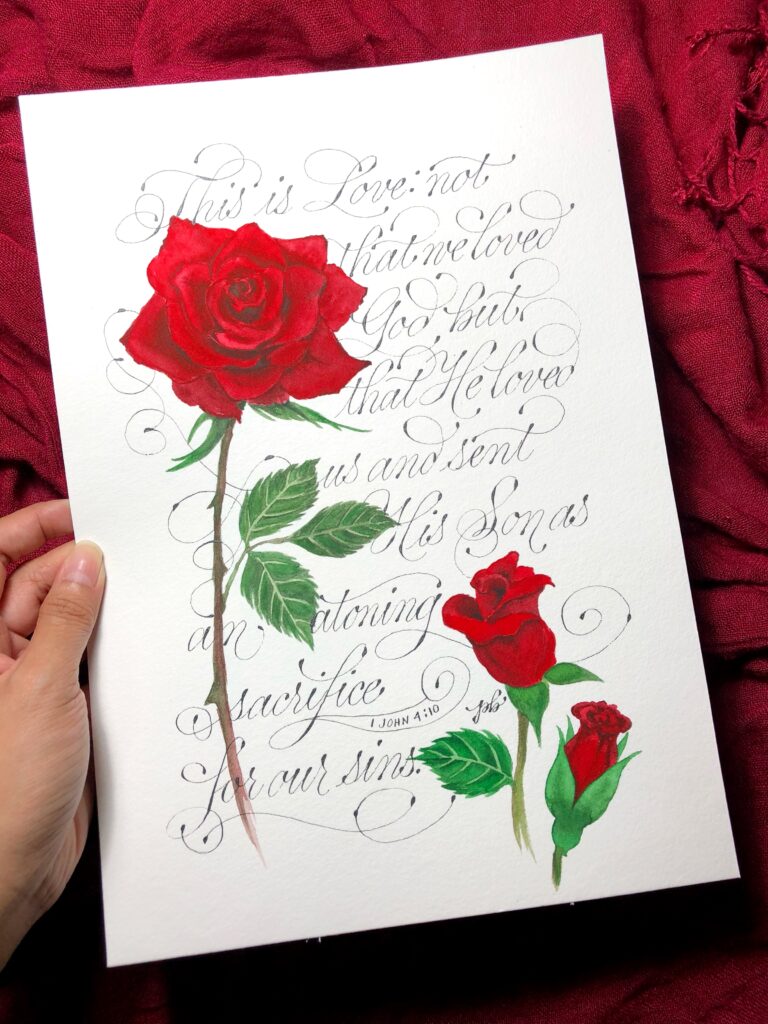 This is Love: not
that we loved
God but
that He loved
us and sent
His Son as
an atoning
sacrifice
1 JOHN 4:10
for our sins.